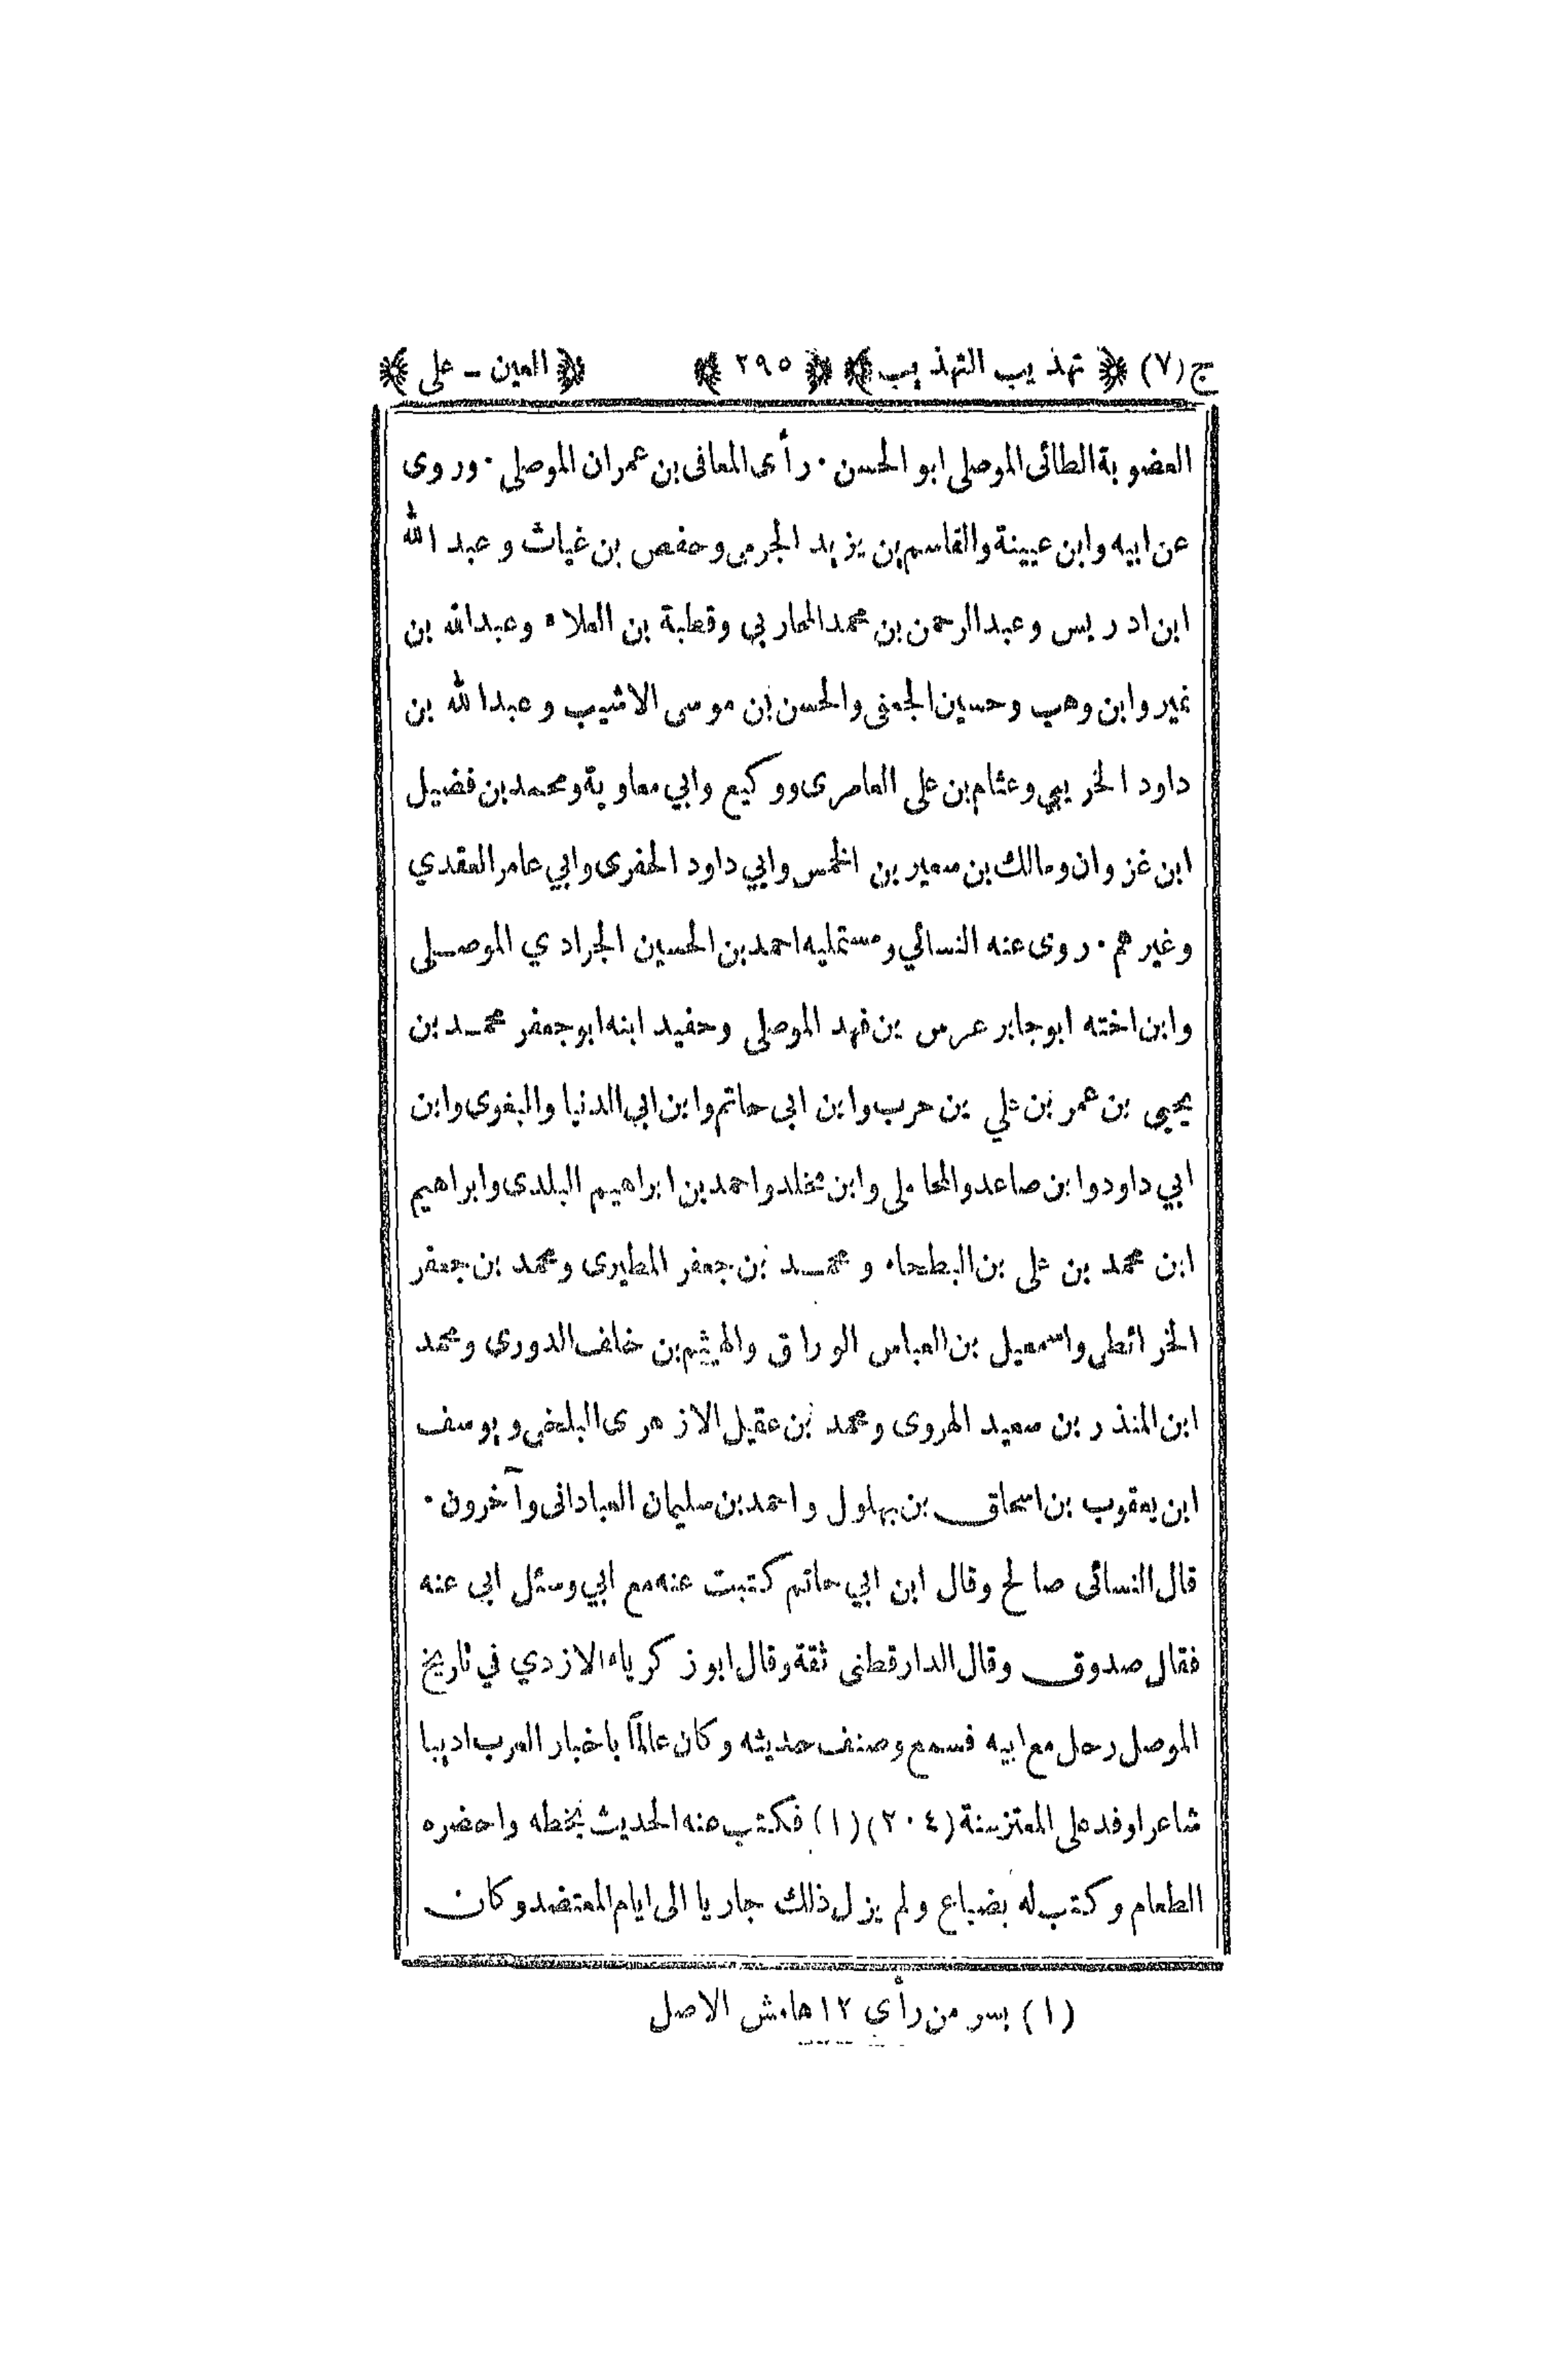 ج (٧) ﴿ تهذيب التهذيب ﴾ ﴿ ٢٩٥ ﴾ ﴿ العين ـ على ﴾
العضوبة الطائى الموصلى ابو الحسن · رأى المعافى بن عمران الموصلى · وروى
عن ابيه وابن عيينة والقاسم بن يزيد الجرمى وحفص بن غياث وعبد الله
ابن ادريس وعبد الرحمن بن محمد المحاربي وقطبة بن العلاء وعبد الله بن
نمير وابن وهب وحسين الجعفى والحسن بن موسى الاشيب وعبد الله بن
داود الخريبي وعثام بن على العامرى ووكيع وابي معاوية ومحمد بن فضيل
ابن غزوان ومالك بن سعير بن الخمس وابي داود الحفرى وابي عامر العقدي
وغيرهم · روى عنه النسائي ومستمليه احمد بن الحسين الجرادي الموصلى
وابن اخته ابو جابر عرس بن فهد الموصلى وحفيد ابنه ابو جعفر محمد بن
يحيى بن عمر بن علي بن حرب وابن ابى حاتم وابن ابي الدنيا والبغوى وابن
ابي داود وابن صاعد والمحاملى وابن مخلد واحمد بن ابراهيم البلدى وابراهيم
ابن محمد بن على بن البطحاء ومحمد بن جعفر المطيرى ومحمد بن جعفر
الخرائطى واسمعيل بن العباس الوراق والهيثم بن خلف الدورى ومحمد
ابن المنذر بن سعيد الهروى ومحمد بن عقيل الازهرى البلخى ويوسف
ابن يعقوب بن اسحاق بن بهلول واحمد بن سليمان العبادانى وآخرون ·
قال النسائى صالح وقال ابن ابي حاتم كتبت عنه مع ابي وسئل ابى عنه
فقال صدوق وقال الدارقطنى ثقة وقال ابو زكرياء الازدي في تاريخ
الموصل رحل مع ابيه فسمع وصنف حديثه وكان عالمًا باخبار العرب اديبا
شاعرا وفد على المعتز سنة (٢٠٤) (١) فكتب عنه الحديث بخطه واحضره
الطعام وكتب له بضياع ولم يزل ذلك جاريا الى ايام المعتضد وكان
(١) بسر من رأى ١٢ هامش الاصل